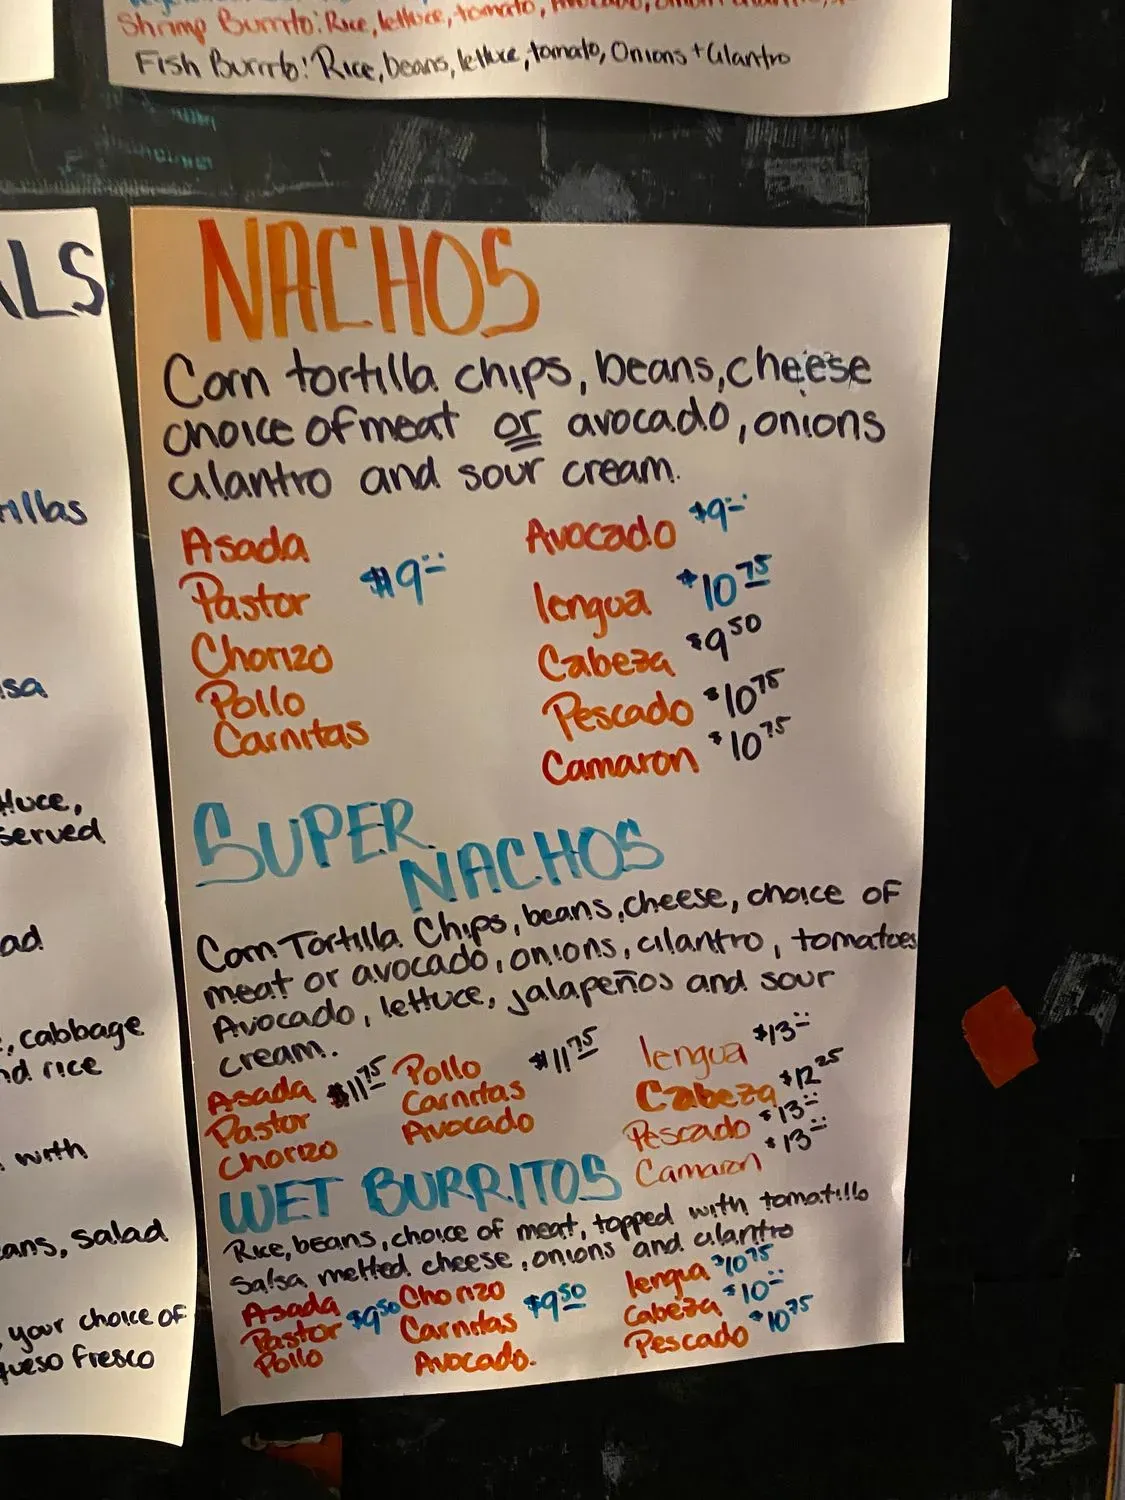 Shrimp Burrito: Rice, lettuce, tomato, Avocado,
Fish Burrito: Rice, beans, lettuce, tomato, Onions + Cilantro
ALS
illas
sa
ttuce,
served
ad
, cabbage
nd rice
with
ans, salad
, your choice of
queso fresco
NACHOS
Corn tortilla chips, beans, cheese
choice of meat or avocado, onions
cilantro and sour cream.
Asada
Pastor $9
Chorizo
Pollo
Carnitas
Avocado $9
lengua $10 75
Cabeza $9 50
Pescado $10 75
Camaron $10 75
SUPER
NACHOS
Corn Tortilla Chips, beans, cheese, choice of
meat or avocado, onions, cilantro, tomatoes
Avocado, lettuce, jalapeños and sour
cream.
Asada $11 75
Pastor
Chorizo
Pollo $11 75
Carnitas
Avocado
lengua $13
Cabeza $12 25
Pescado $13
Camaron $13
WET BURRITOS
Rice, beans, choice of meat, topped with tomatillo
salsa melted cheese, onions and cilantro
Asada
Pastor $9 50
Pollo
Chorizo
Carnitas $9 50
Avocado.
lengua $10 75
Cabeza $10
Pescado $10 75